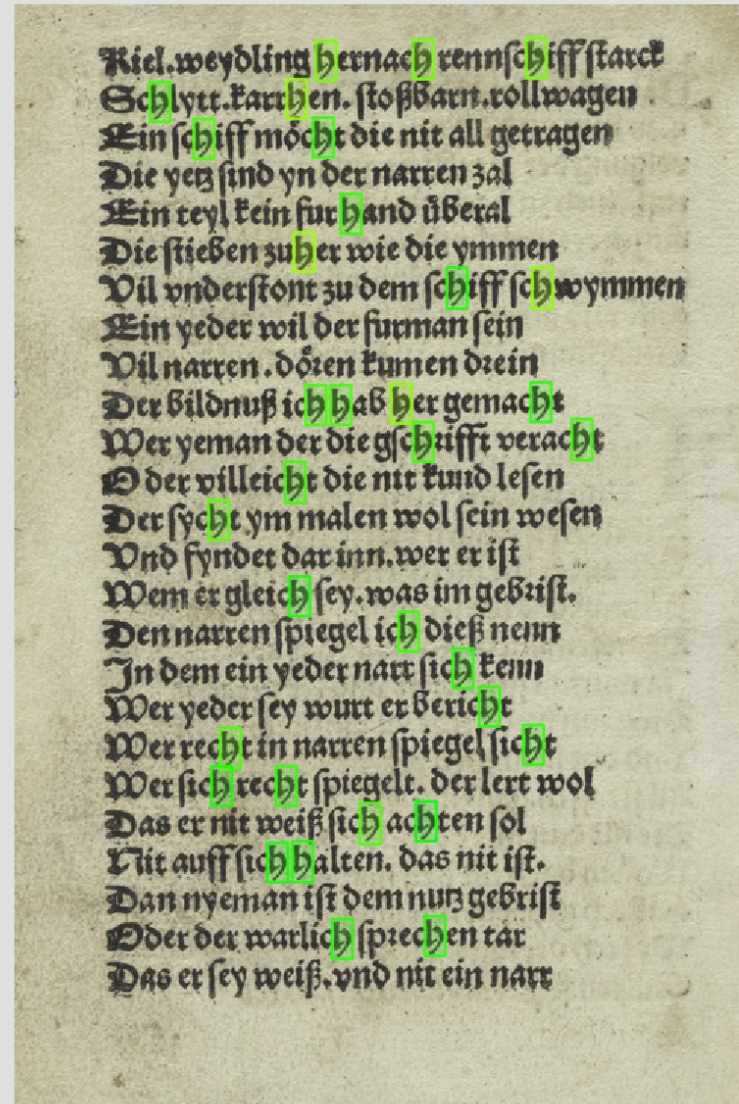 Kiel.weydling hernach rennschiff starck
Schlytt.karrhen.stoßbarn.rollwagen
Ein schiff möcht die nit all getragen
Die yetz sind yn der narren zal
Ein teyl kein fur hand überal
Die stieben zuher wie die ymmen
Vil vnderstont zu dem schiff schwymmen
Ein yeder wil der furman sein
Vil narren.dören kumen drein
Der bildnuß ich hab her gemacht
Wer yeman der die gschrifft veracht
Oder villeicht die nit kund lesen
Der sycht ym malen wol sein wesen
Vnd fyndet dar inn.wer er ist
Wem er gleich sey.was im gebrist.
Den narren spiegel ich dieß nenn
In dem ein yeder narr sich kenn
Wer yeder sey wurt er bericht
Wer recht in narren spiegel sicht
Wer sich recht spiegelt.der lert wol
Das er nit weiß sich achten sol
Nit auff sich halten.das nit ist.
Dan nyeman ist dem nutz gebrist
Oder der warlich sprechen tar
Das er sey weiß.vnd nit ein narr